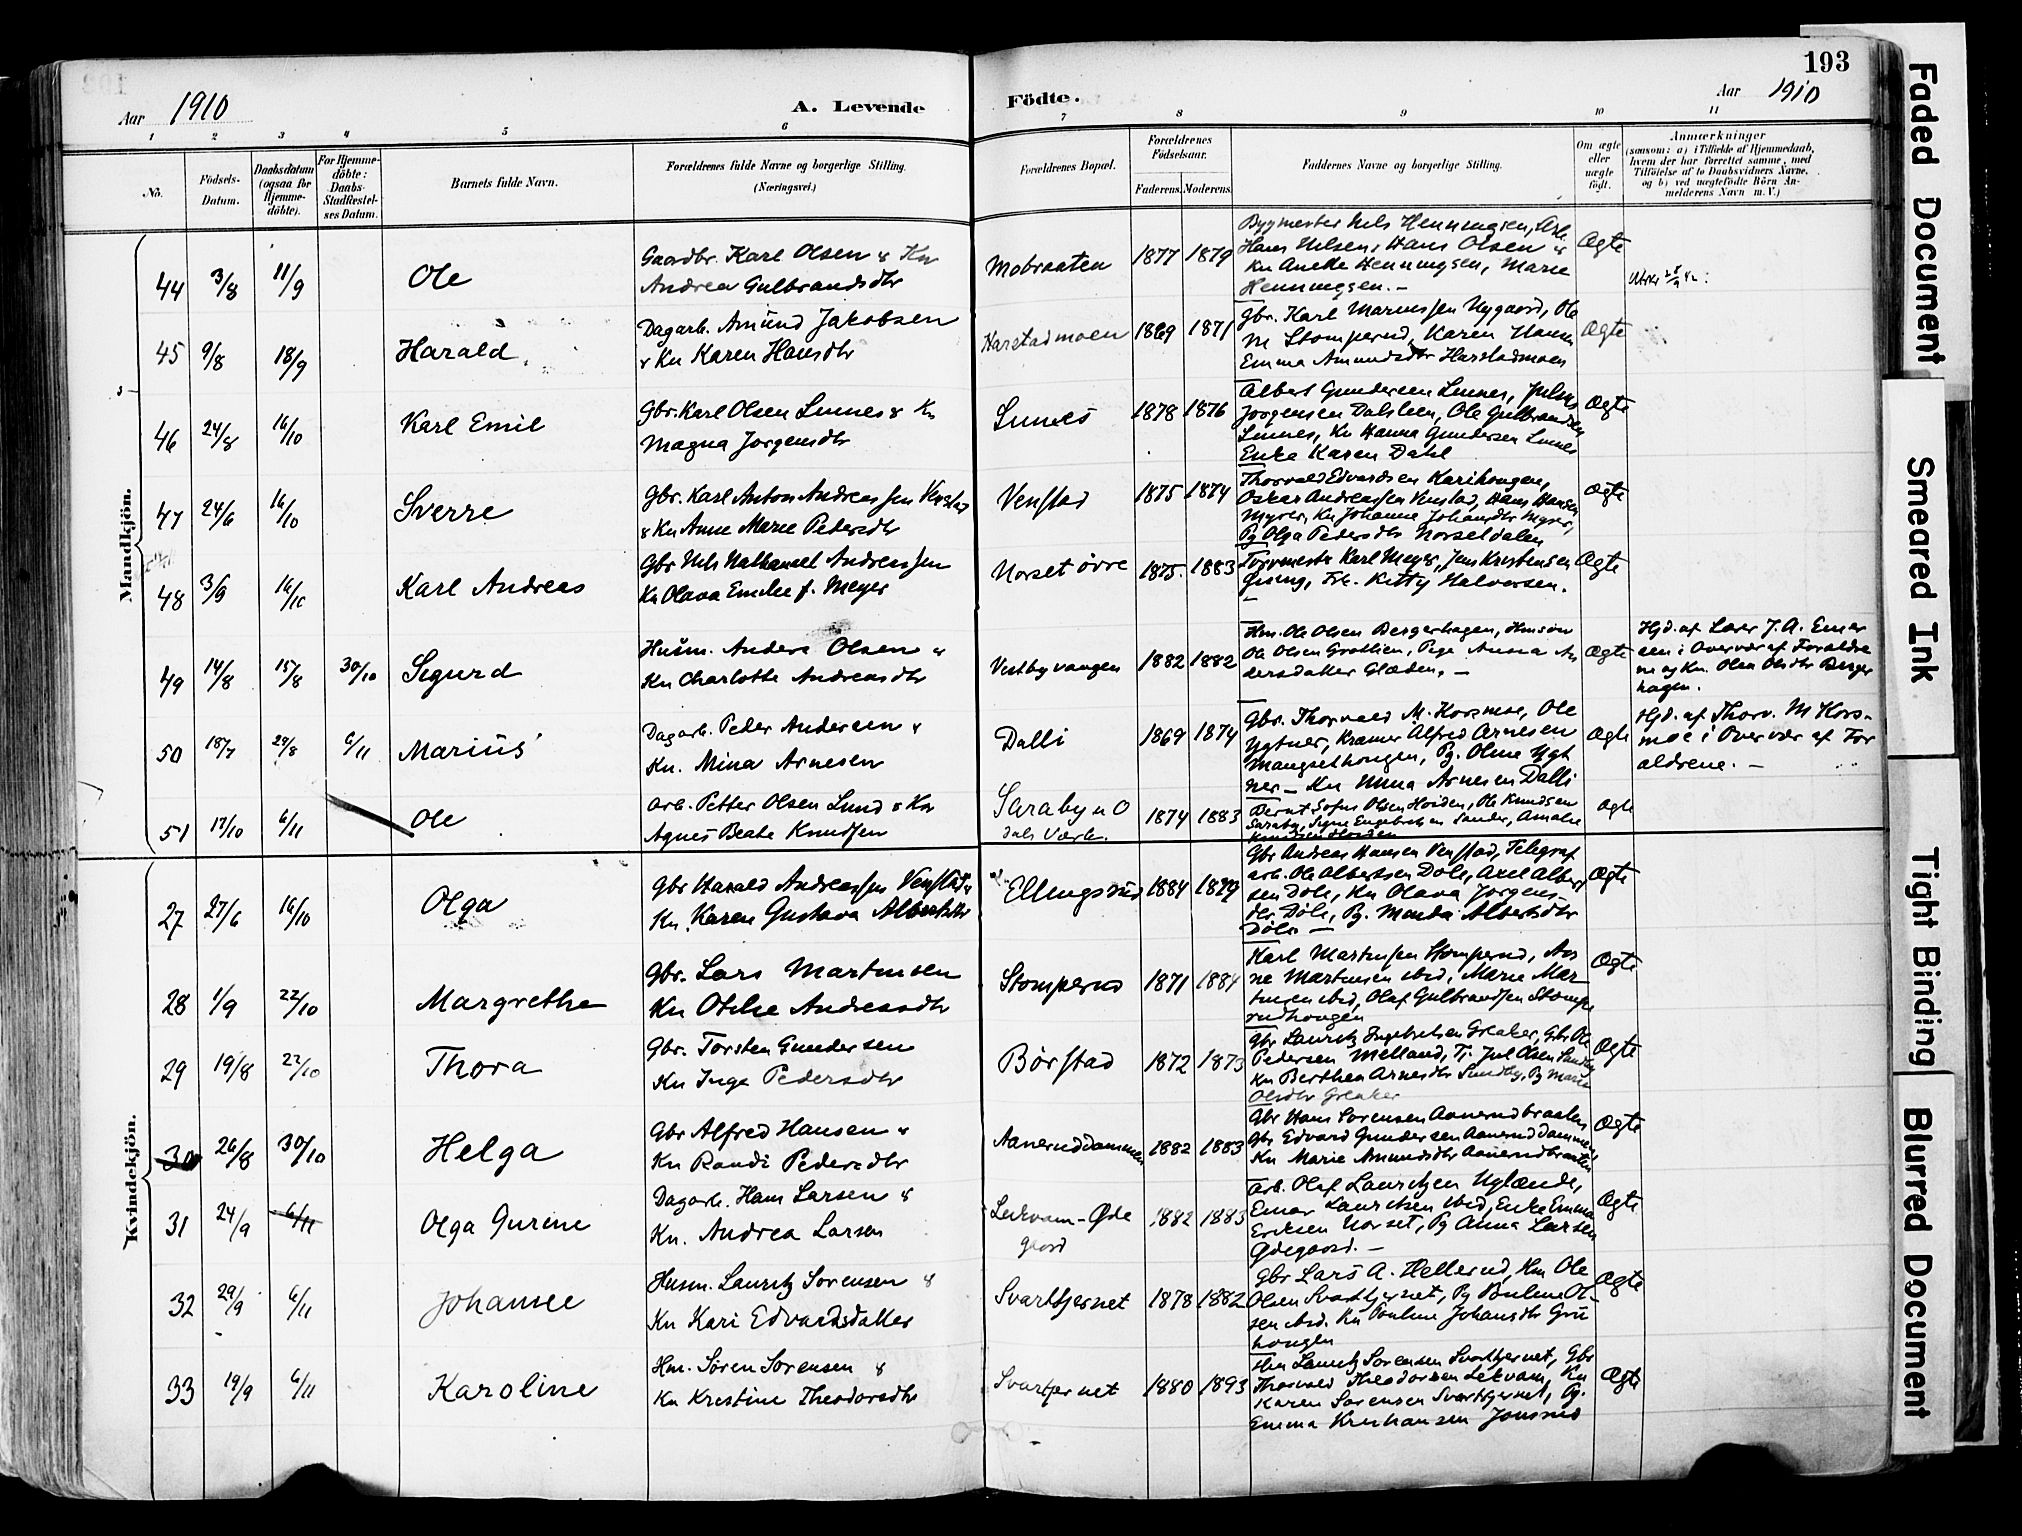 193
Aar 1910
A. Levende
Födte.
Aar 1910
1 2 3 4 5 6 7 8 9 10 11
No.
Födsels-Datum.
Daabsdatum (ogsaa for Hjemme-döbte).
For Hjemme-döbte: Daabs-Stadfæstel-ses Datum.
Barnets fulde Navn.
Forældrenes fulde Navne og borgerlige Stilling. (Næringsvei.)
Forældrenes Bopæl.
Forældrenes Födselsaar.
Faderens. Moderens.
Faddernes Navne og borgerlige Stilling.
Om ægte eller uægte födt.
Anmærkninger
(saasom: a) i Tilfælde af Hjemmedaab, hvem der har forrettet samme, med Tilföielse af to Daabsvidners Navne, og b) ved uægtefödte Börn An-melderens Navn m. V.)
Mandkjön.
44 3/8 11/9 Ole
Gaardbr. Karl Olsen & Kn
Andrea Gulbrandsdtr
Mobraaten 1877 1879
Bygmester Nils Henningsen, Arb.
Hans Nilsen, Hans Olsen &
Kn Anette Henningsen, Marie
Henningsen. —
Ægte
45 9/8 18/9 Harald
Dagarb. Amund Jakobsen
& Kn Karen Hansdtr
Harstadmoen 1869 1871
Gbr. Karl Nygaard, Ole
M Stomperud, Karen Hansen
Emma Amundsdtr Harstadmoen
Ægte
46 24/8 16/10 Karl Emil
Gbr. Karl Olsen Linnes & Kn
Magna Jorgensdtr
Linnes 1878 1876
Albert Gundersen Linnes, Julius
Jorgensen Dalsleen, Ole Gulbrandsen
Linnes, Kn Hanna Gundersen Linnes
Enke Karen Dahl
Ægte
47 24/6 16/10 Sverre
Gbr. Karl Anton Andreassen Venstad
& Kn Anne Marie Pedersdtr
Venstad 1875 1874
Thorvald Edvardsen Karihougen,
Oskar Andreassen Venstad, Hans Hansen
Myrer, Kn Johanne Johansdtr Myrer,
Pg Olga Pedersdtr Norseldalen
Ægte
48 3/9 16/10 Karl Andreas
Gbr Nils Nathanael Andreassen
Kn Olava Emilie f. Meyer
Norset övre 1875. 1883
Karl Meyer, Jens Kristensen
Frk. Kitty Halvorsen.
Ægte
49 14/8 15/8 30/10 Sigurd
Husm. Anders Olsen &
Kn Charlotte Andreasdtr
Vestbyvangen 1882 1882
Hm. Ole Olsen Bergerhagen,
Ole Olsen Pige Anna An
dersdatter Glæden. —
Ægte
Hjd. af Lærer J. A. Einer
sen i Overvær af Forældre
ne og Kn. Olea Olsdtr Berger
hagen.
50 18/7 29/8 6/11 Marius
Dagarb. Peder Andersen &
Kn. Mina Arnesen
Dalli 1869 1874
Gbr. Thorvald M. Korsmoe, Ole
Ygtner, Kramer Alfred Arnesen
Mangsethougen, Pg. Oline Ygt
ner — Kn Mina Arnesen Dalli
Ægte
Hjd. af Thorv. M Kors-
moe i Overvær af For
ældrene. —
51 17/10 6/11 Ole
Arb. Petter Olsen Lund & Kn
Agnes Beate Knudsen
Saraby n O
dals Værk. 1874 1883
Bernt Sofus Olsen Hoiden, Ole Knudsen
Saraby, Signe Engebretsen Sander, Amalie
Knudsen
Ægte
Kvindekjön.
27 27/6 16/10 Olga
Gbr Harald Andreassen Venstad &
Kn. Karen Gustava Albertsdtr
Ellingsrud 1884 1879
Gbr Andreas Hansen Venstad, Telegraf
arb. Ole Albertsen Döle, Axel Albert
sen Döle, Kn Olava Jorgens
dtr Döle, Pg. Menda Albertsdtr
Döle —
Ægte
28 1/9 22/10 Margrethe
Gbr. Lars Martinsen
Kn Otilie Andreasdtr
Stomperud 1871 1884
Karl Martinsen Stomperud, Ar
ne Martinsen ibid, Marie Mar
tinsen ibid, Olaf Gulbrandsen Stompe
rudhougen
Ægte
29 19/8 22/10 Thora
Gbr. Torsten Gundersen
Kn Inga Pedersdtr
Börstad 1872 1873
Gbr Lauritz Ingebretsen Greaker, Gbr Ole
Pedersen Melland, Tj. Jul Olsen Sundby
Kn Berthea Arnesdtr Sundby, Pg Marie
Olsdtr Greaker
Ægte
30 26/8 30/10 Helga
Gbr Alfred Hansen &
Kn Randi Pedersdtr
Aaneruddammen 1882 1883
Gbr Hans Sorensen Aanerudbraaten
Gbr Edvard Gundersen Aaneruddammen,
Kn Marie Amundsdtr Aanerudbraaten
Ægte
31 24/9 6/11 Olga Gurine
Dagarb. Hans Larsen &
Kn. Andrea Larsen
Lekvam-Øde
gaard 1882 1883
Arb. Olaf Lauritzen Uglænde,
Einar Lauritzen ibid, Enke Emma
Eriksen Norset, Pg Anna Larsen
Ødegaard. —
Ægte
32 29/9 6/11 Johanne
Husm. Lauritz Sorensen &
Kn Kari Edvardsdatter
Svartkjernet 1878 1882
Gbr Lars A. Hellerud, Hm Ole
Olsen Svartkjernet, Pg Pauline Ol-
sen ibid. Kn Pauline Johansdtr Gru
hougen
Ægte
33 19/9 6/11 Karoline
Hm. Sören Sorensen &
Kn Kristine Theodorsdtr
Svartjernet 1880 1893
Hm Lauritz Sorensen Svartkjernet, Gbr
Thorvald Theodorsen Lekvam, Kn
Karen Sorensen Svartkjernet, Pg.
Emma Kristiansen Jonsrud
Ægte
Faded Document
Smeared Ink
Tight Binding
Blurred Document